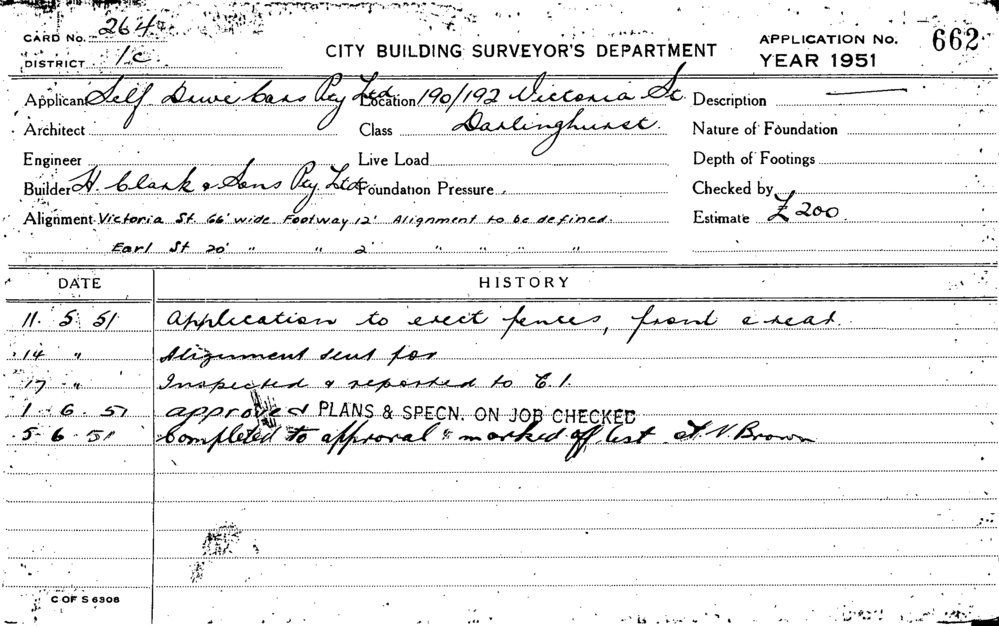 CARD No. 264
DISTRICT 1c
CITY BUILDING SURVEYOR'S DEPARTMENT
APPLICATION No. 662
YEAR 1951
Applicant Self Drive Cars Pty Ltd Location 190/192 Victoria St Description
Architect Class Darlinghurst. Nature of Foundation
Engineer Live Load Depth of Footings
Builder H. Clark & Sons Pty Ltd Foundation Pressure Checked by
Alignment Victoria St 66' wide Footway 12' Alignment to be defined. Estimate £200
Earl St 20' " " 2' " " " "
DATE HISTORY
11. 5 51 Application to erect fences, front & rear.
14 " Alignment sent for
17 " Inspected & reported to C.I.
1 6. 51 approved PLANS & SPECN. ON JOB CHECKED
5 6. 51 Completed to approval & marked off list. Brown
C OF S 6308